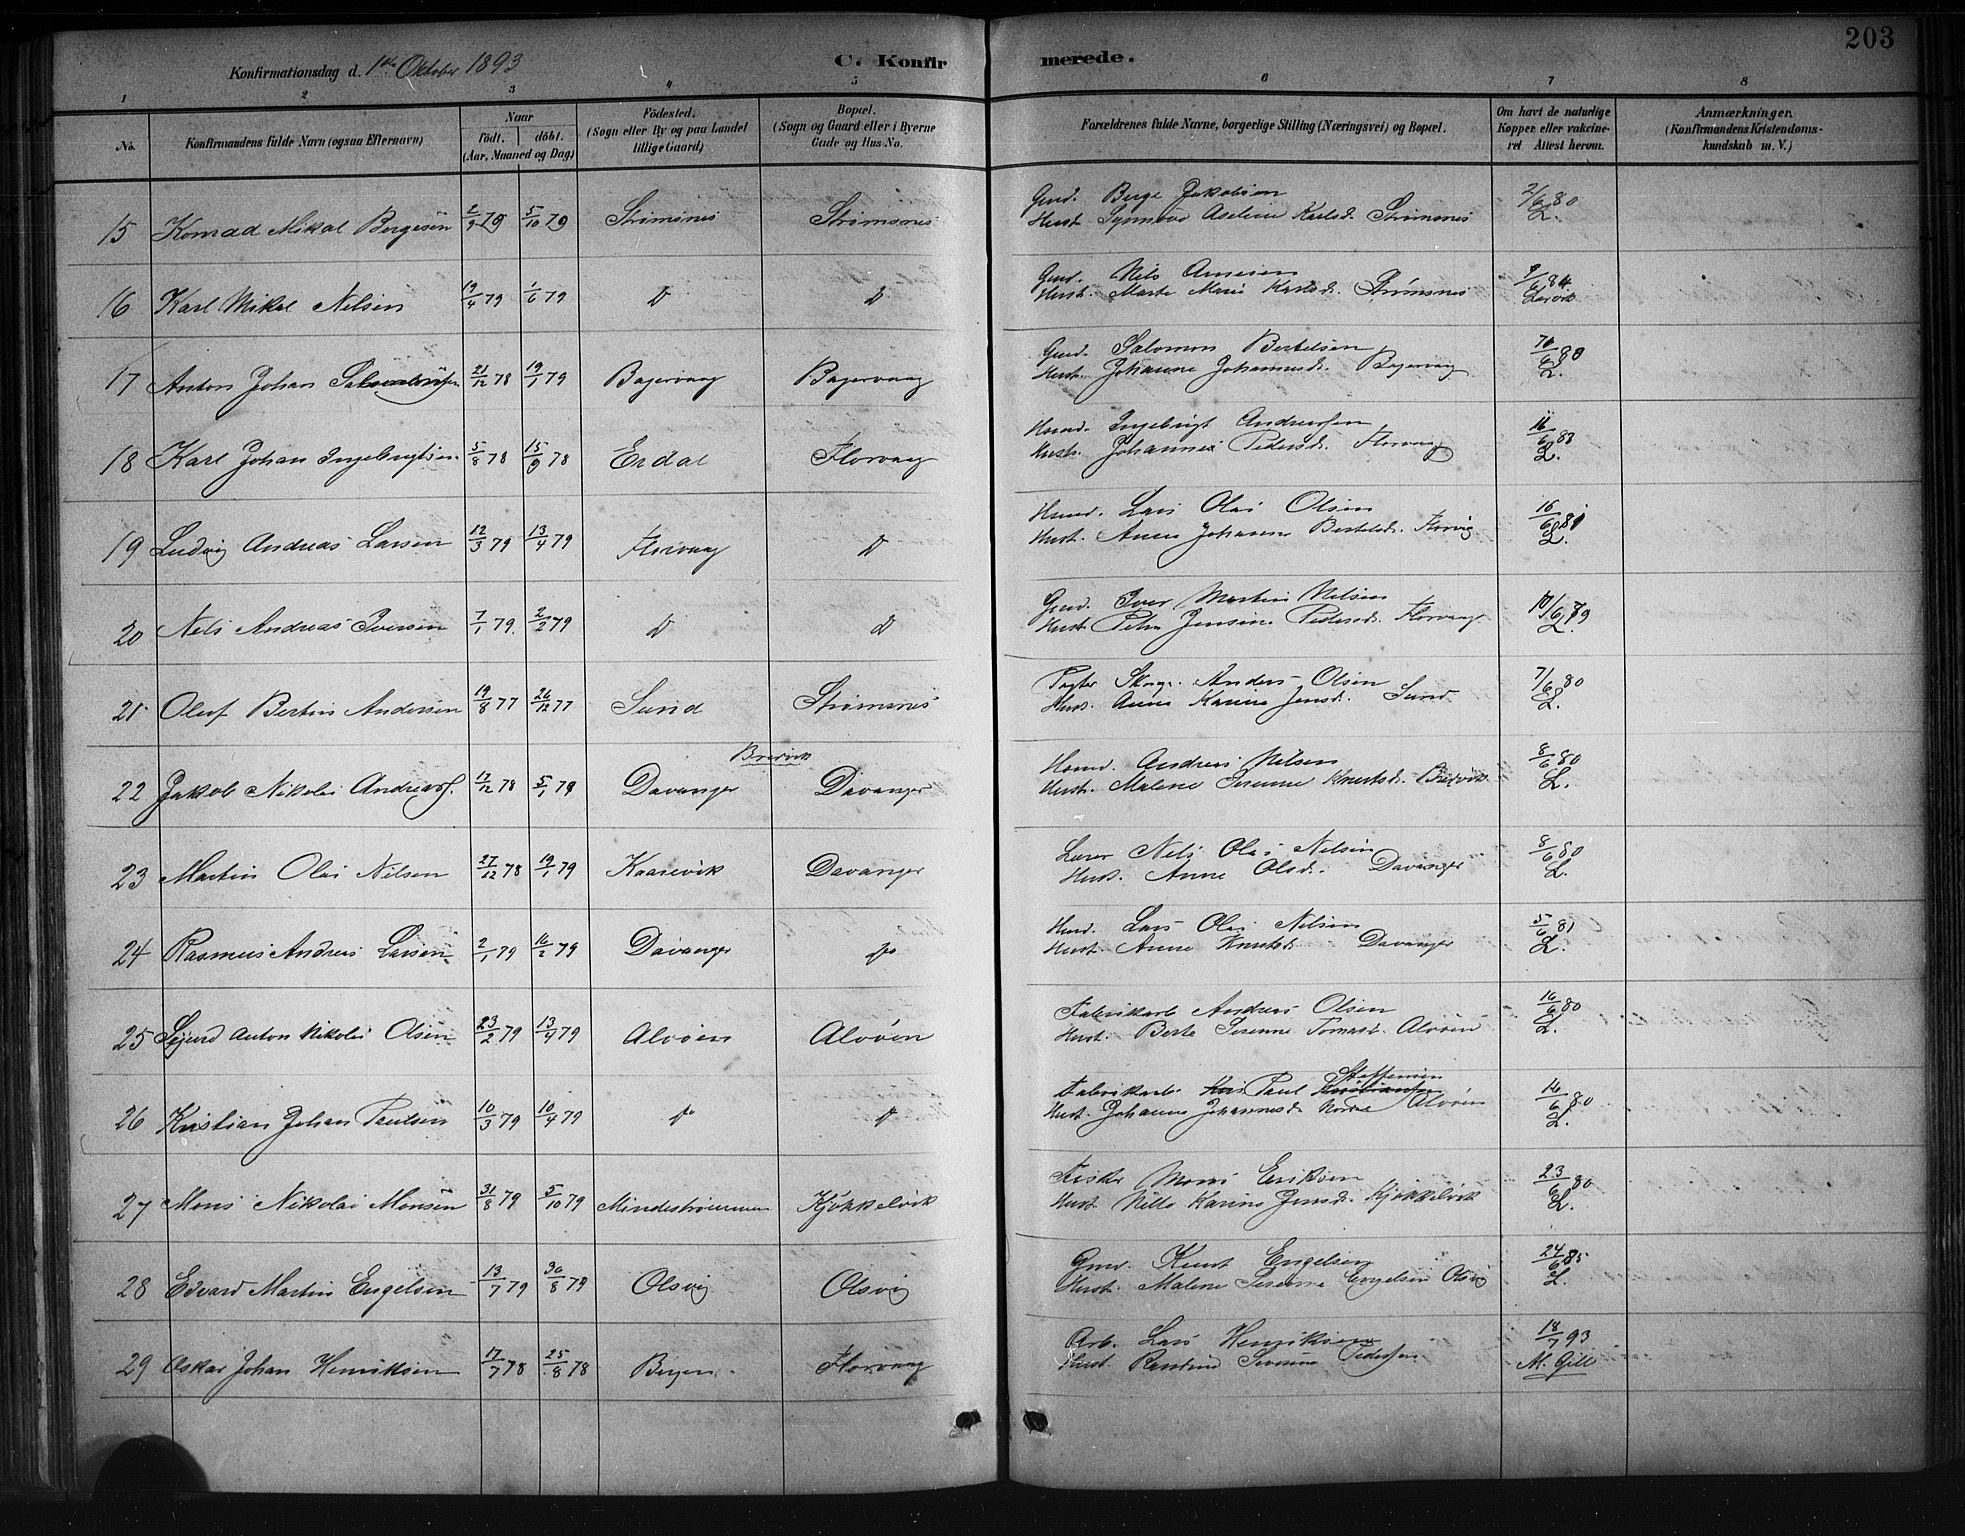 203
Konfirmationsdag d. 1ste Oktober 1893
C. Konfirmerede.
1 2 3 4 5 6 7 8
No.
Konfirmandens fulde Navn (ogsaa Efternavn)
Naar
födt. döbt.
(Aar, Maaned og Dag)
Födested.
(Sogn eller By og paa Landet
tillige Gaard)
Bopæl.
(Sogn og Gaard eller i Byerne
Gade og Hus-No.
Forældrenes fulde Navne, borgerlige Stilling (Næringsvei) og Bopæl.
Om havt de naturlige
Kopper eller vakcine-
ret Attest herom.
Anmærkninger.
(Konfirmandens Kristendoms-
kundskab m. V.)
15 Konrad Mikal Bergesen 2/9 79 5/10 79 Strømsnes Strømsnes
Gmd. Berge Jakobsen 2/6 80
Hust. Synnøve Aseline Karlsd. Strømsnes L.
16 Karl Mikal Nilsen 19/4 79 1/6 79 D D
Gmd. Nils Arnesen 9/6 84
Hust. Marte Marie Karlsd. Strømsnes
17 Anton Johan 21/12 78 19/1 79 Bagervaag Bagervaag
Gmd. Salomon Bertelsen 80
Hust. Johanne Johannesd. Bagervaag L.
18 Karl Johan Ingebrigtsen 5/8 78 15/9 78 Erdal Florvaag
Husmd. Ingebrigt Andersen 83
Hust. Johanne Pedersd. Florvaag L.
19 Ludvig Andreas Larsen 12/3 79 13/4 79 Florvaag D
Husmd. Lars Olai Olsen 16/6 81
Hust. Anne Johanne Bertelsd. Florvåg L.
20 Nels Andreas Iversen 7/1 79. 2/2 79 D D
Gmd. Iver Martin Nilsen 10/6 79
Hust. Petra Jensine Pedersd. Florvaag L.
21 Oluf Bertin Andersen 19/8 77 26/12 77 Sund Strømsnes
Anders Olsen 7/6 80
Hust. Anne Karine Jensd. Sund L.
Bredvik
22 Jakob Nikolai Andreass. 17/12 78 5/1 79 Davanger Davanger
Husmd. Andreas Nilsen 8/6 80
Hust. Malene Serene Knutsd. Bredvik L.
23 Martin Olai Nilsen 27/12 78 19/1 79 Kaarevik Davanger
Lærer Nels Olai Nelsen 8/6 80
Hust. Anne Olsd. Davanger L.
24 Rasmus Andreas Larsen 2/1 79 16/2 79 Davanger do
Husmd. Lars Olai Nilsen 5/6 81
Hust. Anne Knutsd. Davanger L.
25 Sigurd Anton Nikolai Olsen 23/2 79 13/4 79 Alvøen Alvøen
Fabrikarb. Andreas Olsen 16/6 80
Hust. Berte Serene Tomasd. Alvøen L.
26 Kristian Johan Paulsen 10/3 79 10/4 79 do D
Steffensen
Fabrikarb. Paul 80
Hust. Johanne Johannesd. Alvøen L.
27 Mons Nikolai Monsen 31/8 79 5/10 79 Mindestrømmen Kjøkkelvik
Fisker Mons Eriksen 23/6 80
Hust. Karine Jensd. Kjøkkelvik L.
28 Edvard Martin Engelsen 13/7 79 30/8 79 Olsvig Olsvig
Gmd. Knut Engelsen 24/6 85
Hust. Malene Serene Engelsen Olsvig L.
29 Oskar Johan Henriksen 17/7 78 25/8 78 Bergen Florvaag
Arb. Lars Henriksen 18/7 93
Hust. Severine Pedersen M. Gill